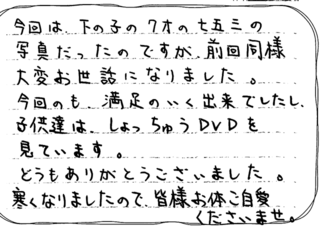 今回は、下の子の7才の七五三の
写真だったのですが、前回同様
大変お世話になりました。
今回のも、満足のいく出来でしたし、
子供達は、しょっちゅうDVDを
見ています。
どうもありがとうございました。
寒くなりましたので、皆様お体ご自愛
くださいませ。